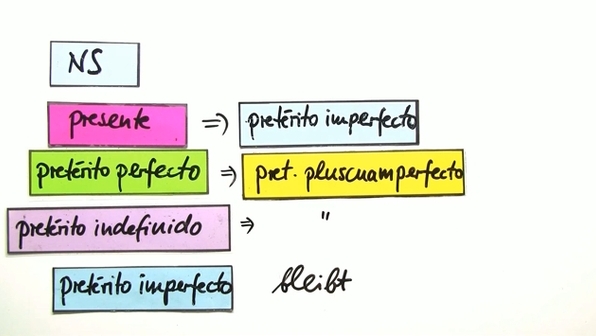 NS
presente => pretérito imperfecto
pretérito perfecto => pret. pluscuamperfecto
pretérito indefinido => "
pretérito imperfecto bleibt